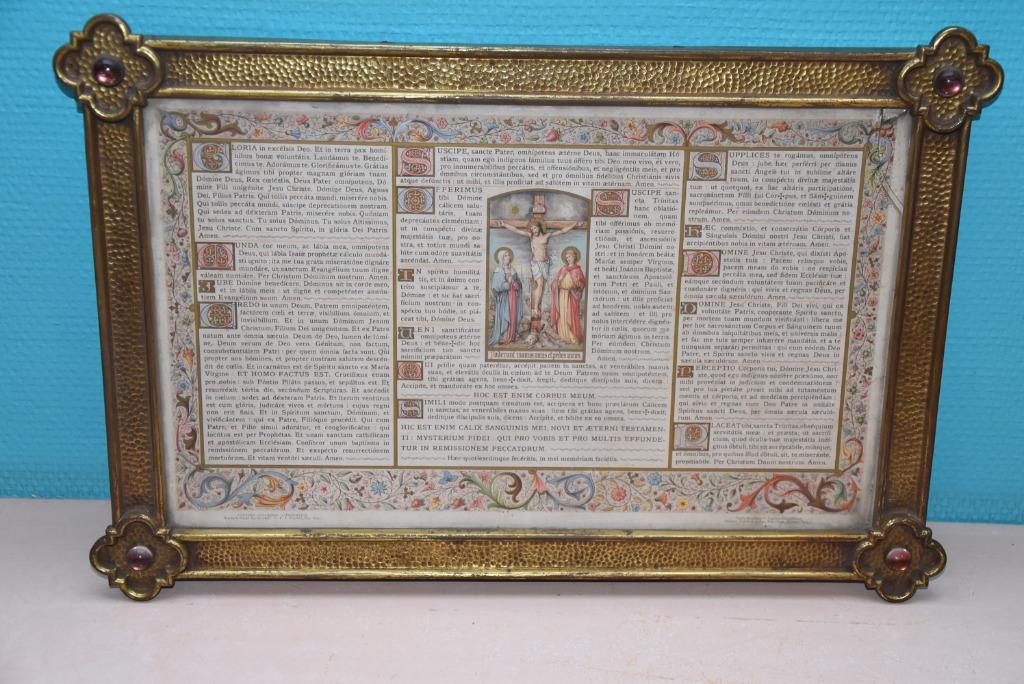 GLORIA in excélsis Deo. Et in terra pax homi-
nibus bonæ voluntátis. Laudámus te. Benedí-
cimus te. Adorámus te. Glorificámus te. Grátias
ágimus tibi propter magnam glóriam tuam.
Dómine Deus, Rex cœléstis, Deus Pater omnípotens, Dó-
mine Fili unigénite Jesu Christe. Dómine Deus, Agnus
Dei, Fílius Patris. Qui tollis peccáta mundi, miserére nobis.
Qui tollis peccáta mundi, súscipe deprecatiónem nostram.
Qui sedes ad déxteram Patris, miserére nobis. Quóniam
tu solus sanctus. Tu solus Dóminus. Tu solus Altíssimus,
Jesu Christe. Cum sancto Spíritu, in glória Dei Patris.
Amen.
MUNDA cor meum, ac lábia mea, omnípotens
Deus, qui lábia Isaíæ prophétæ cálculo mundá-
sti igníto : ita me tua grata miseratióne dignáre
mundáre, ut sanctum Evangélium tuum digne
váleam nuntiáre. Per Christum Dóminum nostrum. Amen.
JUBE Dómine benedícere. Dóminus sit in corde meo,
et in lábiis meis : ut digne et competénter annún-
tiem Evangélium suum. Amen.
CREDO in unum Deum, Patrem omnipoténtem,
factórem cœli et terræ, visibílium ómnium, et
invisibílium. Et in unum Dóminum Jesum
Christum, Fílium Dei unigénitum. Et ex Patre
natum ante ómnia sæcula. Deum de Deo, lumen de lúmi-
ne, Deum verum de Deo vero. Génitum, non factum,
consubstantiálem Patri : per quem ómnia facta sunt. Qui
propter nos hómines, et propter nostram salútem descén-
dit de cœlis. Et incarnátus est de Spíritu sancto ex María
Vírgine : ET HOMO FACTUS EST. Crucifíxus étiam
pro nobis : sub Póntio Piláto passus, et sepúltus est. Et
resurréxit tértia die, secúndum Scriptúras. Et ascéndit
in cœlum : sedet ad déxteram Patris. Et íterum ventúrus
est cum glória, judicáre vivos et mórtuos : cujus regni
non erit finis. Et in Spíritum sanctum, Dóminum, et
vivificántem : qui ex Patre, Filióque procédit. Qui cum
Patre, et Fílio simul adorátur, et conglorificátur : qui
locútus est per Prophétas. Et unam sanctam cathólicam
et apostólicam Ecclésiam. Confíteor unum baptísma in
remissiónem peccatórum. Et exspécto resurrectiónem
mortuórum. Et vitam ventúri sæculi. Amen.
SUSCIPE, sancte Pater, omnípotens ætérne Deus, hanc immaculátam Hó-
stiam, quam ego indígnus fámulus tuus óffero tibi Deo meo vivo, et vero,
pro innumerabílibus peccátis, et offensiónibus, et negligéntiis meis, et pro
ómnibus circumstántibus, sed et pro ómnibus fidélibus Christiánis vivis
atque defúnctis : ut mihi, et illis profíciat ad salútem in vitam ætérnam. Amen.
OFFERIMUS
tibi Dómine
cálicem salu-
táris, tuam
deprecántes cleméntiam :
ut in conspéctu divínæ
majestátis tuæ, pro no-
stra, et totíus mundi sa-
lúte cum odóre suavitátis
ascéndat. Amen.
IN spíritu humilitá-
tis, et in ánimo con-
tríto suscipiámur a
te, Dómine : et sic fiat sacri-
fícium nostrum in con-
spéctu tuo hódie, ut plá-
ceat tibi, Dómine Deus.
VENI sanctificátor
omnípotens ætérne
Deus : et béne✠dic hoc
sacrifícium tuo sancto
nómini præparátum
SUSCIPE san-
cta Trínitas
hanc oblatió-
nem, quam
tibi offérimus ob memó-
riam passiónis, resurre-
ctiónis, et ascensiónis
Jesu Christi Dómini no-
stri : et in honórem beátæ
Maríæ semper Vírginis,
et beáti Joánnis Baptístæ,
et sanctórum Apostoló-
rum Petri et Pauli, et
istórum, et ómnium San-
ctórum : ut illis profíciat
ad honórem, nobis autem
ad salútem : et illi pro
nobis intercédere dignén-
tur in cœlis, quorum me-
móriam ágimus in terris.
Per eúmdem Christum
Dóminum nostrum.
Amen.
QUI prídie quam paterétur, accépit panem in sanctas, ac venerábiles manus
suas, et elevátis óculis in cœlum ad te Deum Patrem suum omnipoténtem,
tibi grátias agens, bene✠dixit, fregit, dedítque discípulis suis, dicens :
Accípite, et manducáte ex hoc omnes.
HOC EST ENIM CORPUS MEUM.
SIMILI modo postquam cœnátum est, accípiens et hunc præclárum Cálicem
in sanctas, ac venerábiles manus suas : item tibi grátias agens, bene✠dixit,
dedítque discípulis suis, dicens : Accípite, et bíbite ex eo omnes.
HIC EST ENIM CALIX SANGUINIS MEI, NOVI ET ÆTERNI TESTAMEN-
TI : MYSTERIUM FIDEI : QUI PRO VOBIS ET PRO MULTIS EFFUNDE-
TUR IN REMISSIONEM PECCATORUM.
Hæc quotiescúmque fecéritis, in mei memóriam faciétis.
SUPPLICES te rogámus, omnípotens
Deus : jube hæc perférri per manus
sancti Angeli tui in sublíme altáre
tuum, in conspéctu divínæ majestátis
tuæ : ut quotquot, ex hac altáris participatióne,
sacrosánctum Fílii tui Cor✠pus, et Sán✠guinem
sumpsérimus, omni benedictióne cœlésti et grátia
repleámur. Per eúmdem Christum Dóminum no-
strum. Amen.
HÆC commíxtio, et consecrátio Córporis et
Sánguinis Dómini nostri Jesu Christi, fiat
accipiéntibus nobis in vitam ætérnam. Amen.
DOMINE Jesu Christe, qui dixísti Apó-
stolis tuis : Pacem relínquo vobis,
pacem meam do vobis : ne respícias
peccáta mea, sed fidem Ecclésiæ tuæ :
eámque secúndum voluntátem tuam pacificáre et
coadunáre dignéris : qui vivis et regnas Deus, per
ómnia sæcula sæculórum. Amen.
DOMINE Jesu Christe, Fili Dei vivi, qui ex
voluntáte Patris, cooperánte Spíritu sancto,
per mortem tuam mundum vivificásti : líbera me
per hoc sacrosánctum Corpus et Sánguinem tuum
ab ómnibus iniquitátibus meis, et univérsis malis :
et fac me tuis semper inhærére mandátis, et a te
numquam separári permíttas : qui cum eódem Deo
Patre, et Spíritu sancto vivis et regnas Deus in
sæcula sæculórum. Amen.
PERCEPTIO Córporis tui, Dómine Jesu Chri-
ste, quod ego indígnus súmere præsúmo, non
mihi provéniat in judícium et condemnatiónem :
sed pro tua pietáte prosit mihi ad tutaméntum
mentis et córporis, et ad medélam percipiéndam :
qui vivis et regnas cum Deo Patre in unitáte
Spíritus sancti Deus, per ómnia sæcula sæculó-
rum. Amen.
PLACEAT tibi, sancta Trínitas, obséquium
servitútis meæ : et præsta, ut sacrifí-
cium, quod óculis tuæ majestátis indí-
gnus óbtuli, tibi sit acceptábile, mihíque,
et ómnibus, pro quibus illud óbtuli, sit, te miseránte,
propitiábile. Per Christum Dóminum nostrum. Amen.